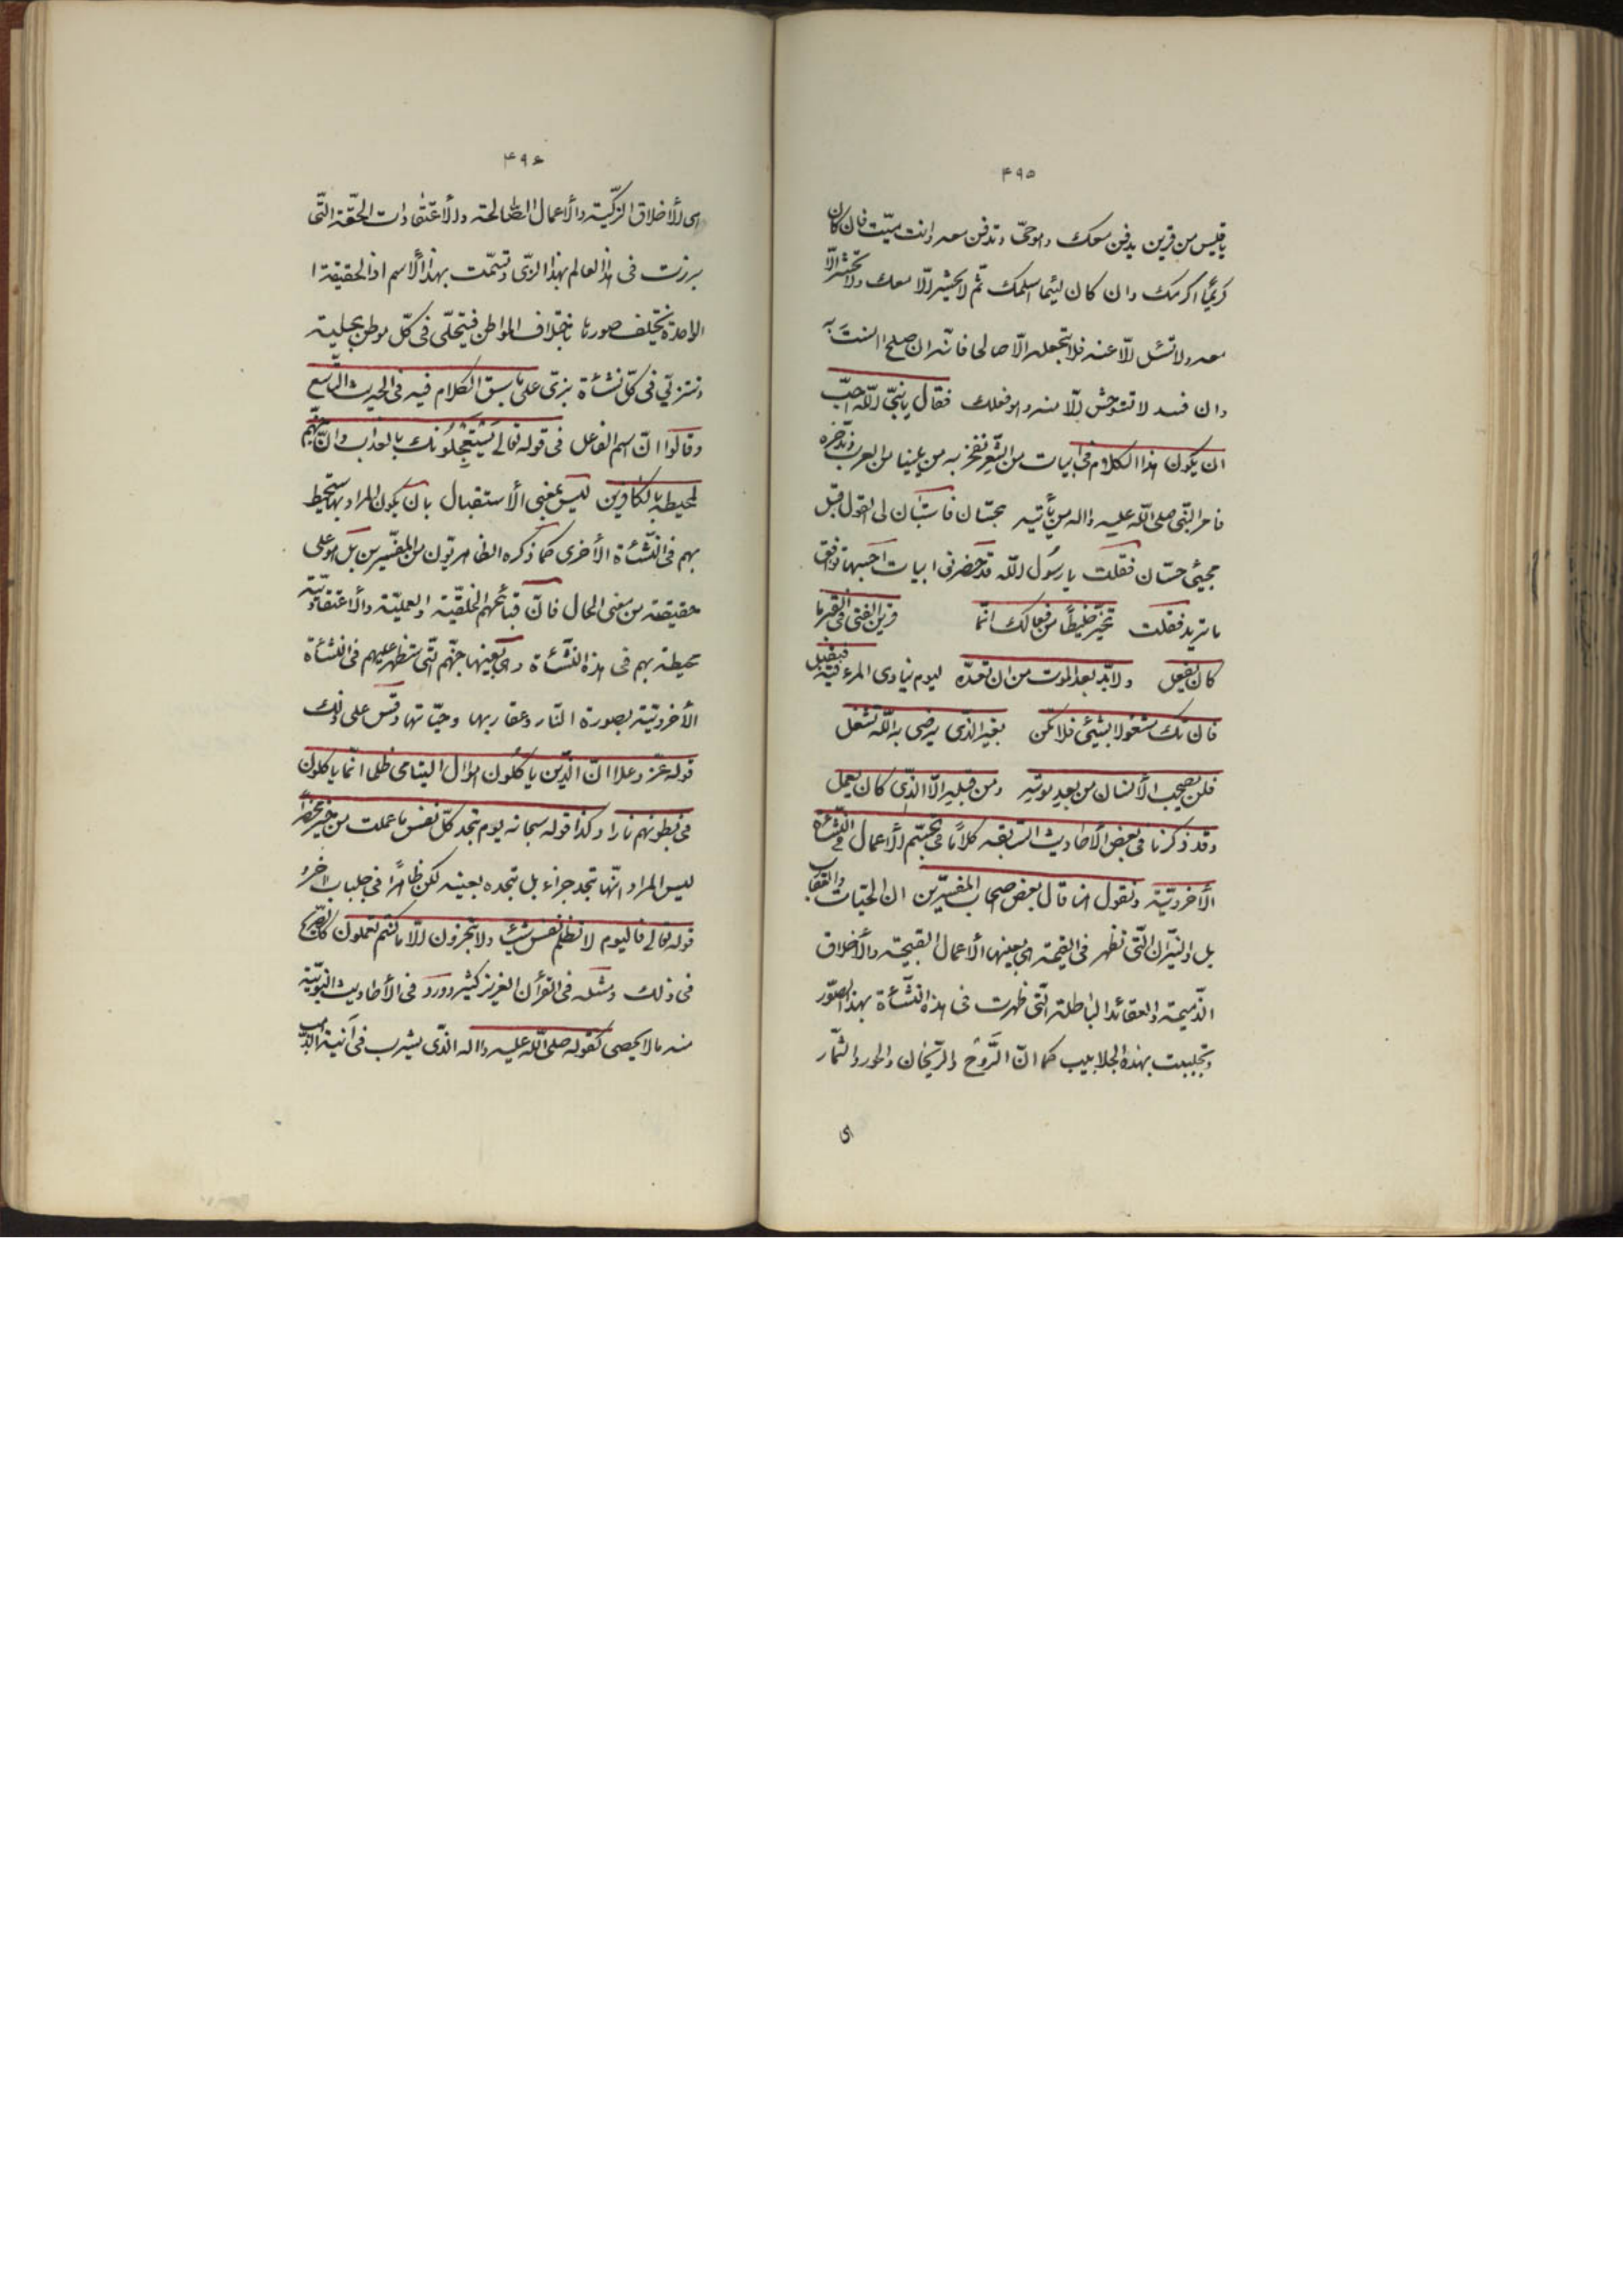 ۴۹۵
يا قيس من قرين يدفن معك وهو حىّ وتدفن معه وانت ميّت فان كان
كريمًا اكرمك وان كان لئيما اسلمك ثّم لا يحشر الّا معك ولا تحشر الّا
معه ولا تسئل الّا عنه فلا تجعله الّا صالحا فانّه ان صلح انست به
وان فسد لا تستوحش الّا منه وهو فعلك فقال يا نبىّ اللّه احبّ
ان يكون هذا الكلام فى ابيات من الشّعر نفخر به من يلينا من العرب وندّخره
فامر النّبى صلى اللّه عليه واله من يأتيه بحسّان فاستبان لى القول قبل
مجيئ حسّان فقلت يا رسول اللّه قد حضرنى ابيات احسبها توافق
ما تريد فقلت تخيّر خليطًا من فعالك انّما قرين الفتى فى القبر ما
كان يفعل ولا بّد بعد الموت من ان تعدّه ليوم ينادى المرء فيه فيقبل
فان تك مشغولا بشيئى فلا تكن بغير الّذى يرضى به اللّه تشغل
فلن يصحب الأنسان من بعد موته ومن قبله الّا الّذى كان يعمل
وقد ذكرنا فى بعض الأحاديث السّابقه كلامًا فى تجسّم الأعمال فى النّشأة
الأخرويّة ونقول هنا قال بعض اصحاب المفسّرين ان الحيّات والعقا
بل والنيّران الّتى تظهر فى القيمة هى بعينها الأعمال القبيحة والأخلاق
الذّميمة والعقائد الباطلة الّتى ظهرت فى هذه النّشأة بهذه الصّور
وتجلببت بهذه الجلابيب كما انّ الرَّوْح والرّيحان والحور والثّمار
هى
۴۹۶
هى الأخلاق الزّكيّة والأعمال الصّالحة والأعتقادات الحقّة الّتى
برزت فى هذا العالم بهذا الزّى وتسمّت بهذا الأسم اذ الحقيقة ا
الواحدة تختلف صورها باختلاف المواطن فتتحلّى فى كلّ موطن بحلية
وتتزيّى فى كلّ نشأة بزىّ على ما سبق الكلام فيه فى الحديث التّاسع
وقالوا انّ اسم الفاعل فى قوله تعالى يَسْتَعْجِلُونَك بالعذاب وانّ جهنّم
لمحيطة بالكافرين ليس بمعنى الأستقبال بان يكون المراد بها ستحيط
بهم فى النّشأة الأخرى كما ذكره الظاهريّون من المفسّرين بل هو على
حقيقته من معنى الحال فانّ قبائحهم الخلقيّة والعمليّة والأعتقاديّة
محيطة بهم فى هذه النّشأة وهى بعينها جهنّم الّتى ستظهر عليهم فى النّشأة
الأخرويّة بصورة النّار وعقاربها وحيّاتها وقس على ذلك
قوله عزّ وعلا انّ الّذين ياكلون اموال اليتامى ظلما انّما ياكلون
فى بطونهم نارا وكذا قوله سبحانه يوم تجد كلّ نفس ما عملت من خير محضرًا
ليس المراد انّها تجد جزاءه بل تجده بعينه لكن ظاهرًا فى جلباب اخر و
قوله تعالى فاليوم لا تظلم نفس شيئا ولا تجزون الّا ما كنتم تعملون كالصّريح
فى ذلك ومثله فى القرأن العزيز كثير وورد فى الأحاديث النّبويّة
منه ما لا يحصى كقوله صلى اللّه عليه واله الّذى يشرب فى آنية الذّهب